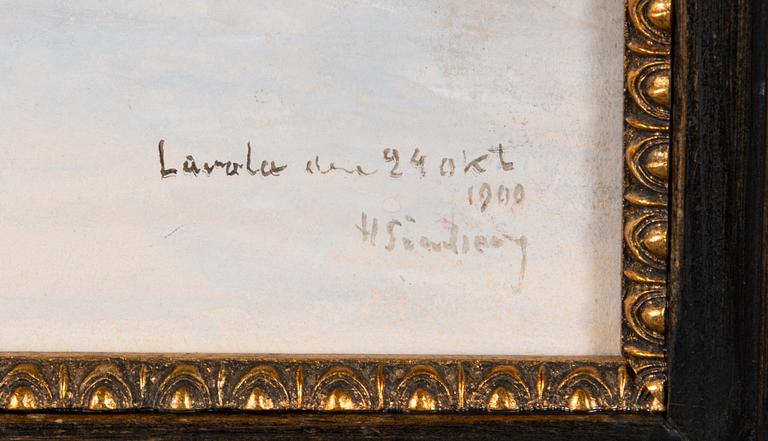 Lavola den 24 okt
1900
H